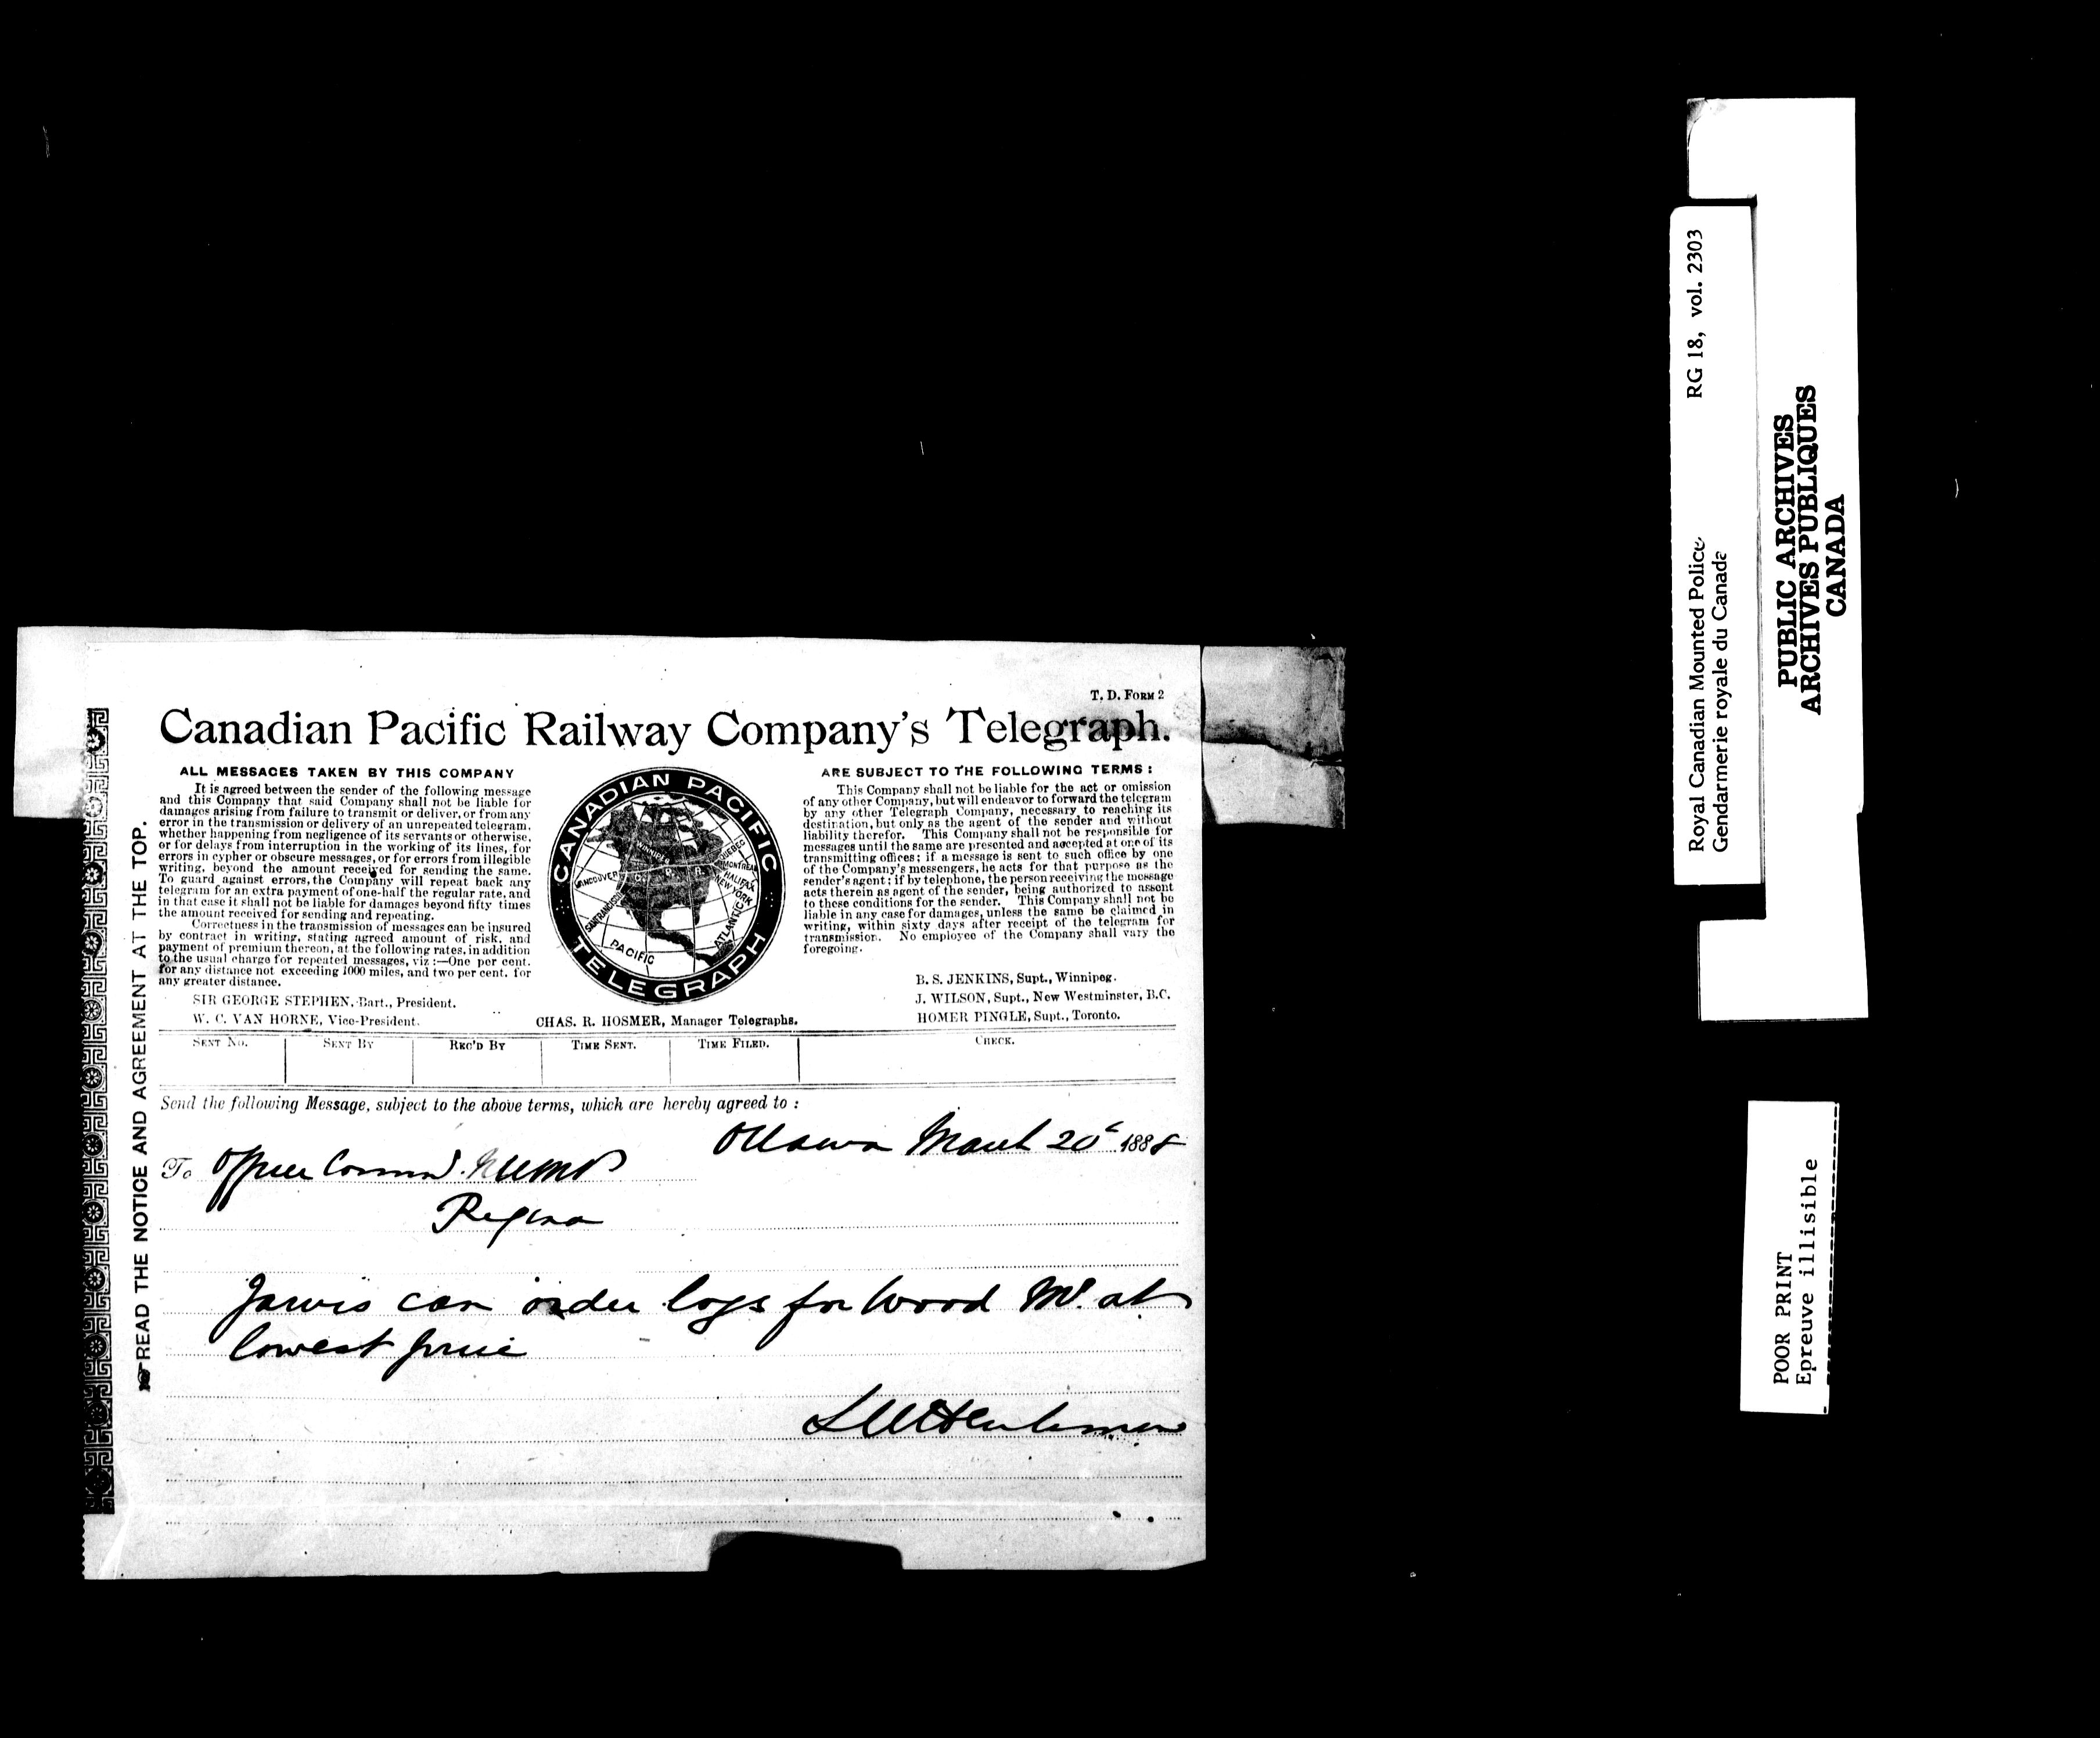 T. D. FORM 2
Canadian Pacific Railway Company's Telegraph.
ALL MESSAGES TAKEN BY THIS COMPANY
It is agreed between the sender of the following message
and this Company that said Company shall not be liable for
damages arising from failure to transmit or deliver, or from any
error in the transmission or delivery of an unrepeated telegram,
whether happening from negligence of its servants or otherwise,
or for delays from interruption in the working of its lines, for
errors in cypher or obscure messages, or for errors from illegible
writing, beyond the amount received for sending the same.
To guard against errors, the Company will repeat back any
telegram for an extra payment of one-half the regular rate, and
in that case it shall not be liable for damages beyond fifty times
the amount received for sending and repeating.
Correctness in the transmission of messages can be insured
by contract in writing, stating agreed amount of risk, and
payment of premium thereon, at the following rates, in addition
to the usual charge for repeated messages, viz :—One per cent.
for any distance not exceeding 1000 miles, and two per cent. for
any greater distance.
SIR GEORGE STEPHEN, Bart., President.
W. C. VAN HORNE, Vice-President.
CANADIAN PACIFIC
TELEGRAPH
WINNIPEG
QUEBEC
MONTREAL
HALIFAX
NEW YORK
VANCOUVER
C. P. R.
SANFRANCISCO
ATLANTIC
PACIFIC
CHAS. R. HOSMER, Manager Telegraphs.
ARE SUBJECT TO THE FOLLOWING TERMS :
This Company shall not be liable for the act or omission
of any other Company, but will endeavor to forward the telegram
by any other Telegraph Company, necessary to reaching its
destination, but only as the agent of the sender and without
liability therefor. This Company shall not be responsible for
messages until the same are presented and accepted at one of its
transmitting offices; if a message is sent to such office by one
of the Company's messengers, he acts for that purpose as the
sender's agent; if by telephone, the person receiving the message
acts therein as agent of the sender, being authorized to assent
to these conditions for the sender. This Company shall not be
liable in any case for damages, unless the same be claimed in
writing, within sixty days after receipt of the telegram for
transmission. No employee of the Company shall vary the
foregoing.
B. S. JENKINS, Supt., Winnipeg.
J. WILSON, Supt., New Westminster, B.C.
HOMER PINGLE, Supt., Toronto.
SENT NO.
SENT BY
REC'D BY
TIME SENT.
TIME FILED.
CHECK.
Send the following Message, subject to the above terms, which are hereby agreed to :
Ottawa March 20 1888
To Officer Command. NWMP
Regina
Jarvis can order logs for Wood Mn. at
lowest price
READ THE NOTICE AND AGREEMENT AT THE TOP.
Royal Canadian Mounted Police RG 18, vol. 2303
Gendarmerie royale du Canada
PUBLIC ARCHIVES
ARCHIVES PUBLIQUES
CANADA
POOR PRINT
Epreuve illisible